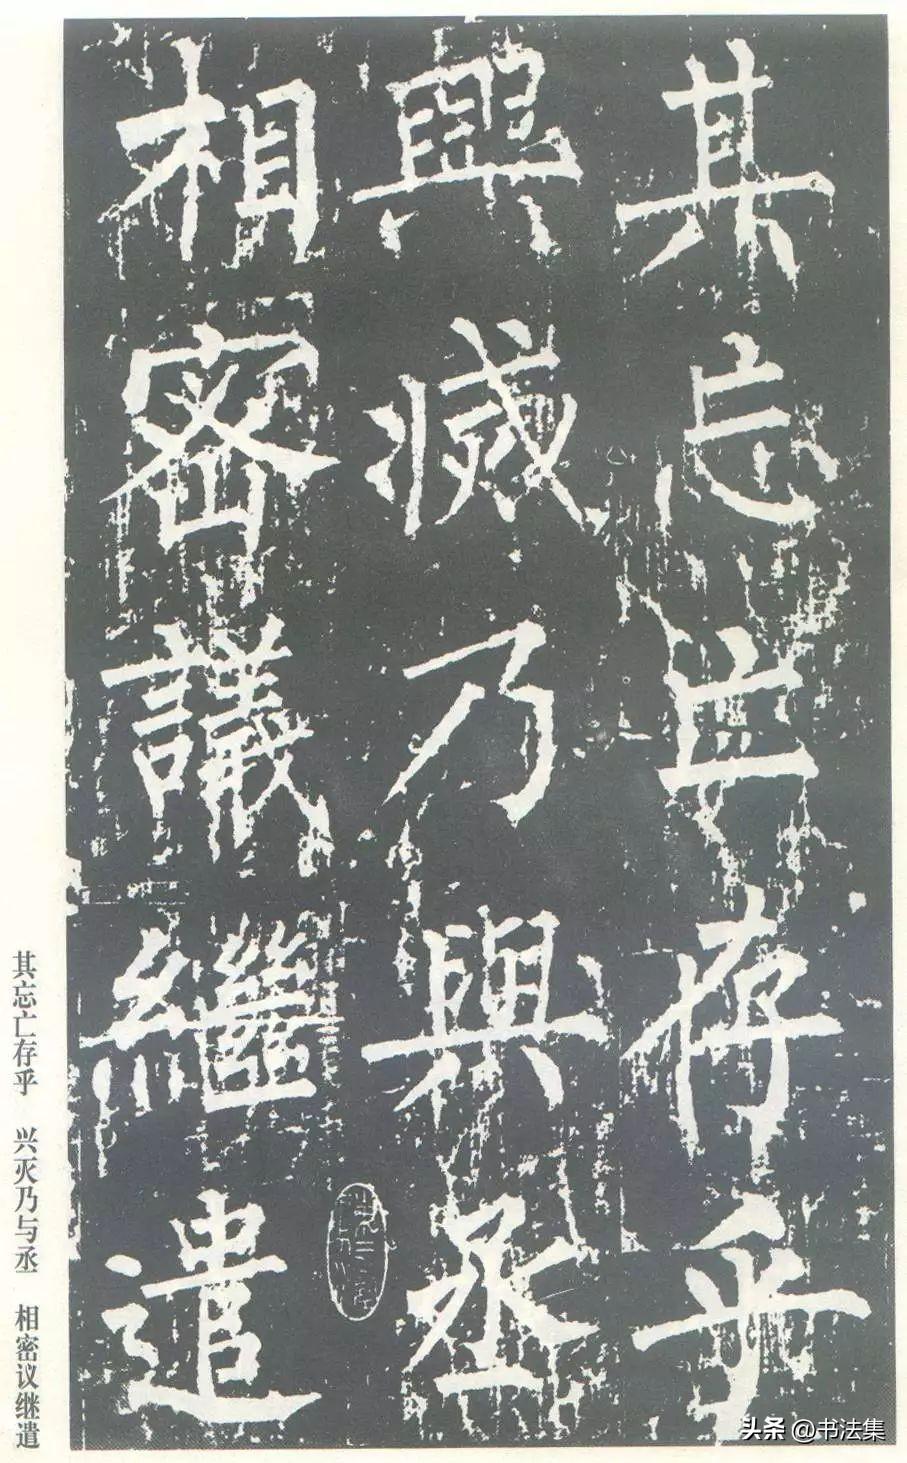 其忘亡存乎
興滅乃與丞
相密議繼遣
其忘亡存乎 兴灭乃与丞 相密议继遣
头条 @书法集